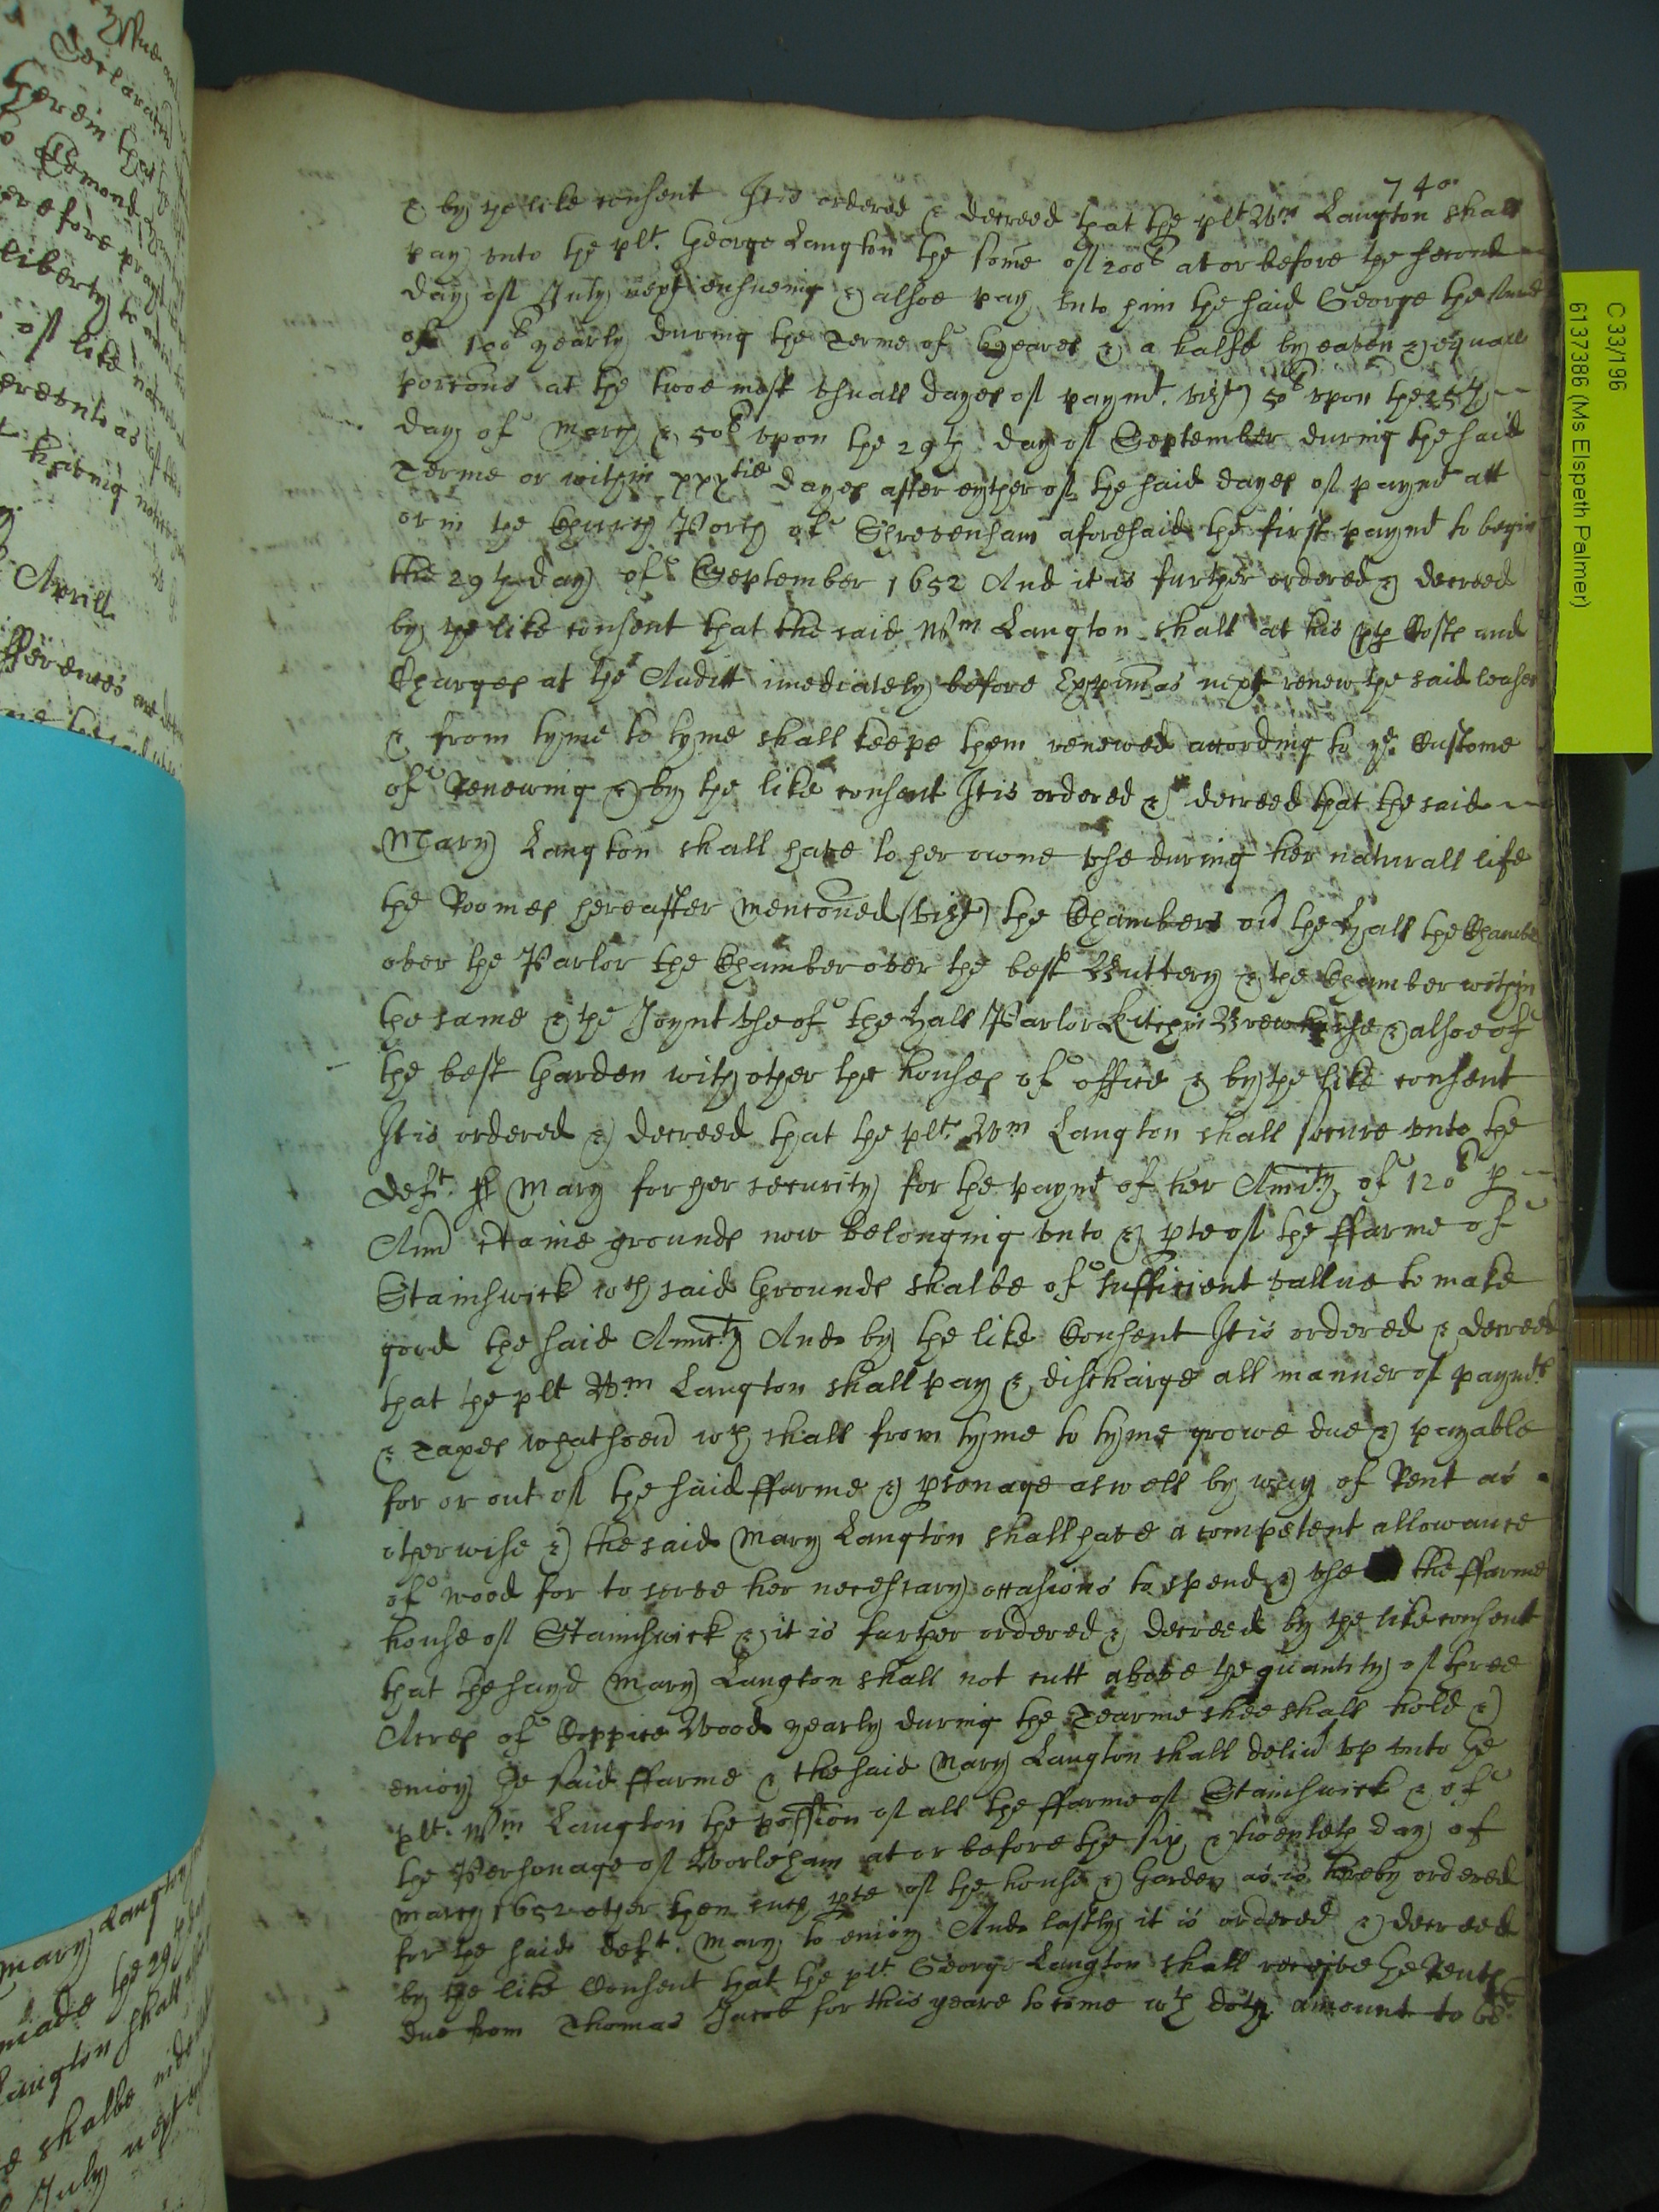 740
& by the like consent It is ordered & decreed that the plt Wm Langton shall
pay unto the plt. George Langton the some of 200li at or before the second
day of July next ensueing & alsoe pay unto him the said George the some
of 100li yearly during the Terme of yeares & a halfe by eaven & equall
porcons at the twoe most usuall dayes of paymt. vizt) 50li upon the 25th
day of March & 50li upon the 29th day of September during the said
Terme or within xxxtie dayes after eyther of the said dayes of paymt att
or in the Church Porch of Shrevenham aforesaid the first paymt to begin
the 29th day of September 1652 And it is further ordered & decreed
by the like consent that the said Wm Langton shall at his pp Costs and
Charges at the Auditt imediately before Xppimas next renew the said leases
& from tyme to tyme shall keepe them renewed according to ye. Custome
of Renewing & by the like consent It is ordered & decreed that the said
Mary Langton shall have to her owne use during her naturall life
the Roomes hereafter menconed (vizt) the Chambers ov the Hall the Chamber
over the Parlor the Chamber over the best Buttery & the Chamber within
the same & the Joynt use of the Hall Parlor Kitchin Brewhouse & alsoe of
the best Garden with other the houses of office & by the like consent
It is ordered & decreed that the plt. Wm Langton shall secure unto the
Deft. Mary for her security for the paymt of her Anuity of 120li p
Ann ctaine grounds now belonging unto & pte of the ffarme of
Stainswick wch said Grounds shalbe of sufficient vallue to make
good the said Annuity And by the like Consent It is ordered & decreed
that the plt Wm Langton shall pay & discharge all manner of paymts
& Taxes whatsoev wch shall from tyme to tyme growe due & payable
for or out of the said ffarme & psonage aswell by way of Rent as
otherwise & the said Mary Langton shall have a competent allowance
of wood for to serve her necessary occasions to spend & use the ffarme
house of Stainswick & it is further ordered & decreed by the like consent
that the sayd Mary Langton shall not cutt above the quantity of three
Acres of Coppice Wood yearly during the Tearme shee shall hold &
enioy the said ffarme & the said Mary Langton shall deliv up unto the
plt. Wm Langton the possion of all the ffarme of Stainswick & of
the Personage of Worlsham at or before the six & twentieth day of
March 1652 other then such pte of the house & Garden as is hereby ordered
for the said deft. Mary to enioy And lastly it is ordered & decreed
by the like Consent that the plt. George Langton shall receive the Rents
due from Thomas Jacob for this yeare to come wch doth amount to
C 33/196
6137386 (Ms Elspeth Palmer)